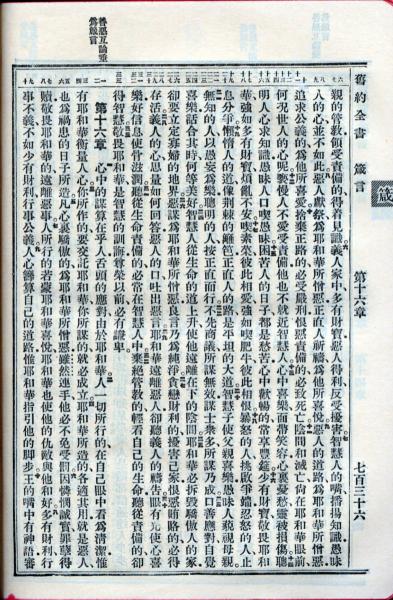 箴
舊約全書 箴言 第十六章 七百三十六
親的管教領受責備的得着見識義人家中多有財寶惡人得利反受擾害智慧人的嘴播揚知識愚昧
人的心並不如此惡人獻祭爲耶和華所憎惡正直人祈禱爲他所喜悅惡人的道路爲耶和華所憎惡
追求公義的爲他所喜愛捨棄正路的必受嚴刑恨惡責備的必致死亡陰間和滅亡尚在耶和華眼前
何况世人的心呢褻慢人不愛受責備他也不就近智慧人心中喜樂面帶笑容心裏憂愁靈被損傷聰
明人心求知識愚昧人口喫愚昧困苦人的日子都是愁苦心中歡暢的常享豐筵少有財寶敬畏耶和
華強如多有財寶煩亂不安喫素菜彼此相愛強如喫肥牛彼此相恨暴怒的人挑啟爭端忍怒的人止
息分爭懶惰人的道像荆棘的籬笆正直人的路是平坦的大道智慧子使父親喜樂愚昧人藐視母親
無知的人以愚妄爲樂聰明的人按正直而行不先商議所謀無效謀士衆多所謀乃成口善應對自覺
喜樂話合其時何等美好智慧人從生命的道上升使他遠離在下的陰間耶和華必拆毀驕傲人的家
卻要立定寡婦的地界惡謀爲耶和華所憎惡良言乃爲純淨貪戀財利的擾害己家恨惡賄賂的必得
存活義人的心思量如何回答惡人的口吐出惡言耶和華遠離惡人卻聽義人的禱告眼有光使心喜
樂好信息使骨滋潤聽從生命責備的必常在智慧人中棄絕管教的輕看自己的生命聽從責備的卻
得智慧敬畏耶和華是智慧的訓誨尊榮以前必有謙卑
第十六章 心中的謀算在乎人舌頭的應對由於耶和華人一切所行的在自己眼中看爲清潔惟
有耶和華衡量人心你所作的要交託耶和華你所謀的就必成立耶和華所造的各適其用就是惡人
也爲禍患的日子所造凡心裏驕傲的爲耶和華所憎惡雖然連手他必不免受罰因憐憫誠實罪孽得
贖敬畏耶和華的遠離惡事人所行的若蒙耶和華喜悅耶和華也使他的仇敵與他和好多有財利行
事不義不如少有財利行事公義人心籌算自己的道路惟耶和華指引他的脚步王的嘴中有神語審
善惡互論垂
爲箴言